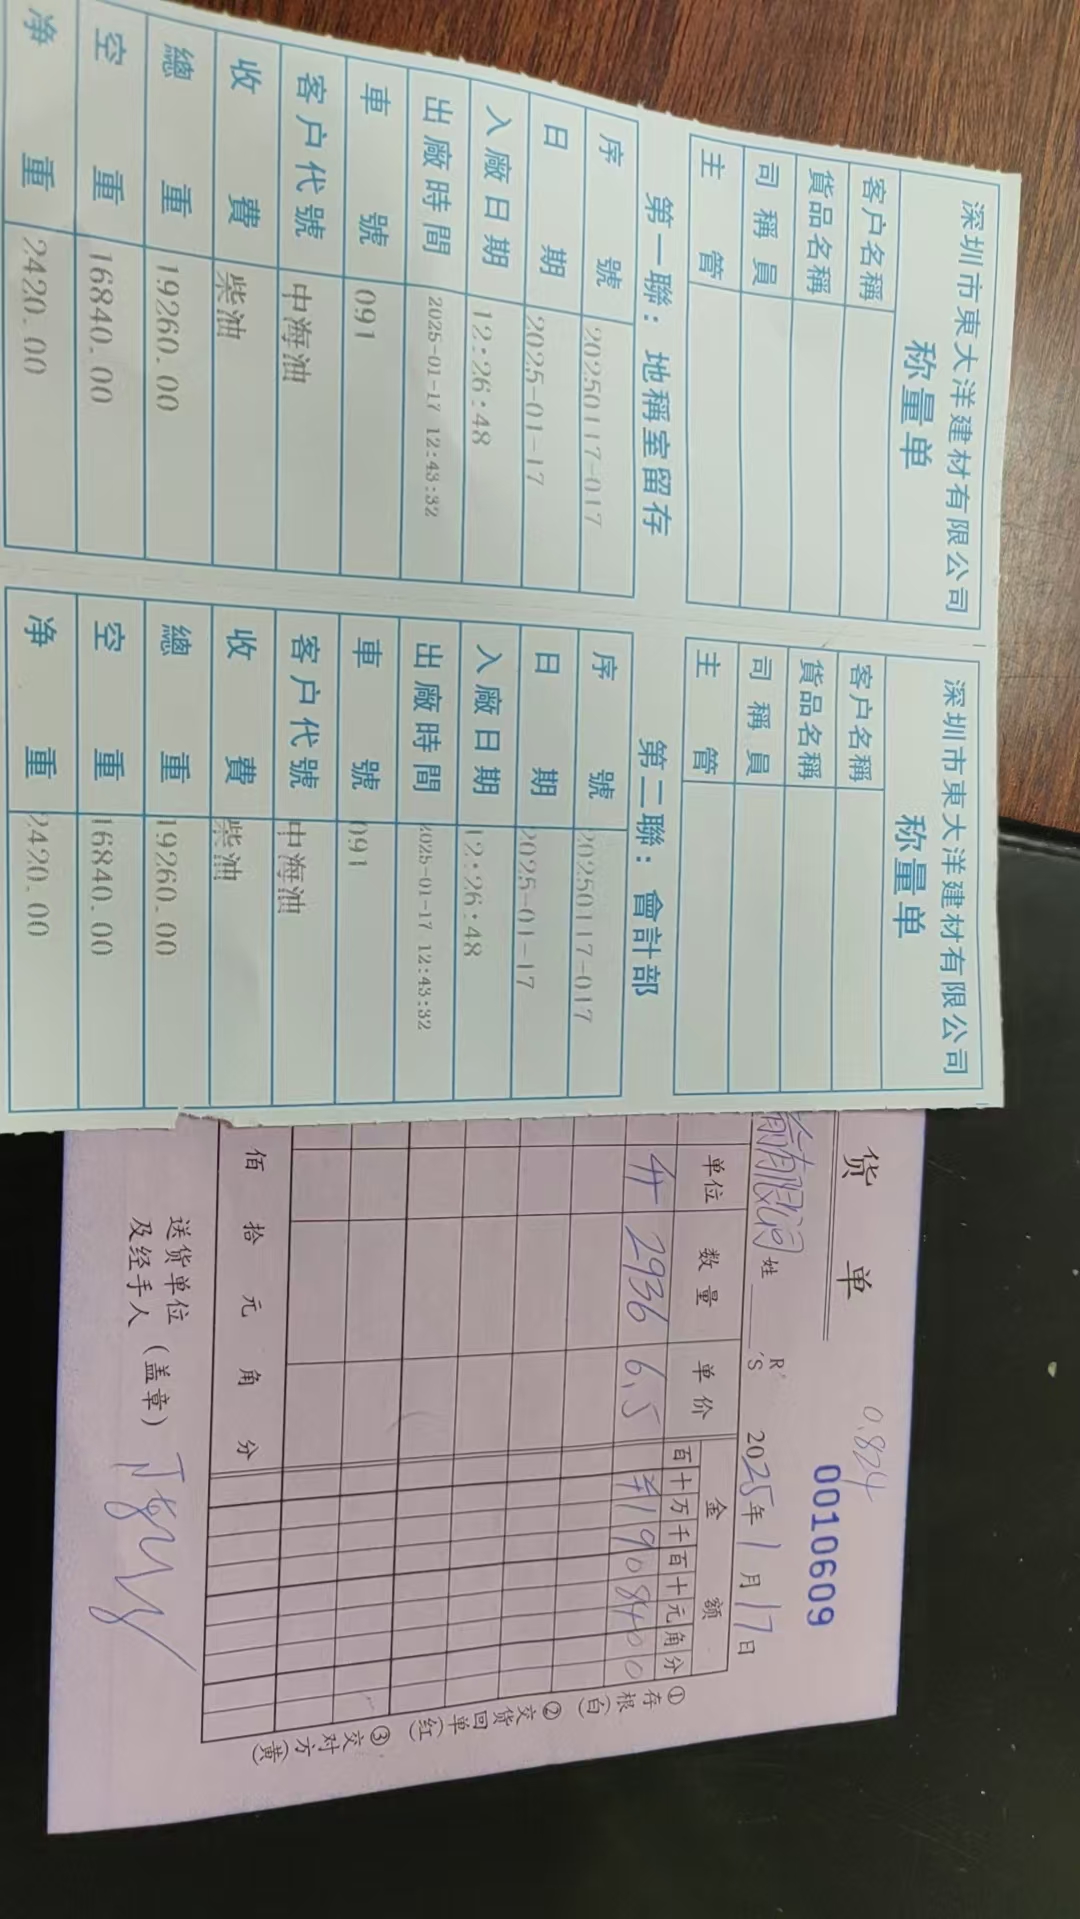 深圳市東大洋建材有限公司
称量单
客户名稱
貨品名稱
司稱員
主管
第一聯：地稱室留存
序號 20250117-017
日期 2025-01-17
入廠日期 12:26:48
出廠時間 2025-01-17 12:43:32
車號 091
客户代號 中海油
收費 柴油
總重 19260.00
空重 16840.00
净重 2420.00
深圳市東大洋建材有限公司
称量单
客户名稱
貨品名稱
司稱員
主管
第二聯：會計部
序號 20250117-017
日期 2025-01-17
入廠日期 12:26:48
出廠時間 2025-01-17 12:43:32
車號 091
客户代號 中海油
收費 柴油
總重 19260.00
空重 16840.00
净重 2420.00
货单
0.824
0010609
有限公司 姓 R'S 2025年1月17日
单位 数量 单价 金额
百十万千百十元角分
升 2936 6.5 ¥1908400
佰拾元角分
送货单位及经手人（盖章）
①存根（白） ②交货回单（红） ③交对方（黄）